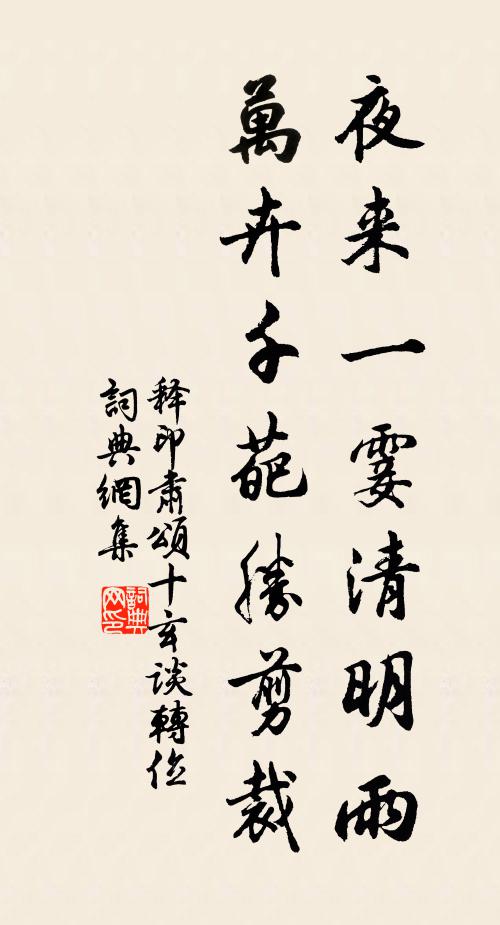 夜来一霎清明雨
萬卉千葩勝剪裁
释印肅頌十玄談轉位
詞典網集
詞典网印